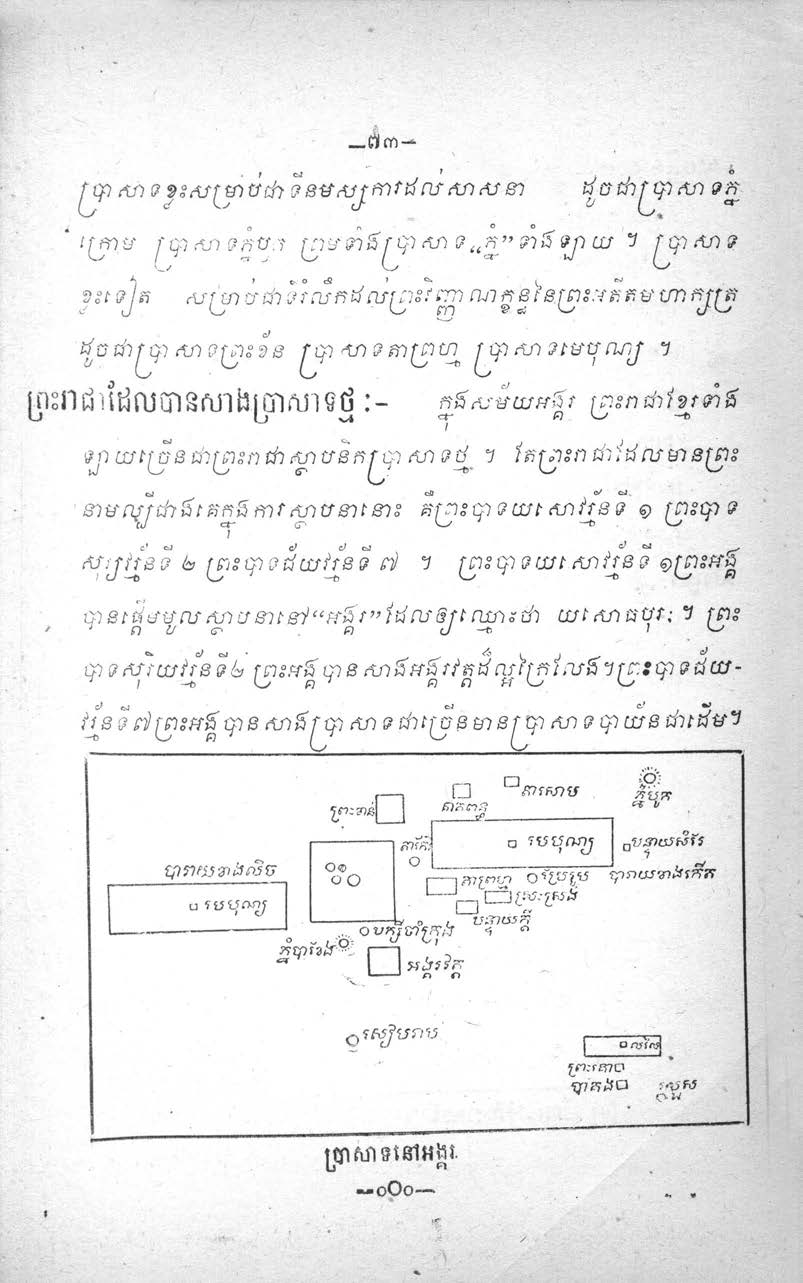 —៧៣—
ប្រាសាទខ្លះសម្រាប់ជាទីនមស្សការដល់សាសនា ដូចជាប្រាសាទភ្នំ
ក្រោម ប្រាសាទភ្នំបូក ព្រមទាំងប្រាសាទ„ភ្នំ”ទាំងឡាយ ។ ប្រាសាទ
ខ្លះទៀត សម្រាប់ជាទីរំលឹកដល់ព្រះវិញ្ញាណក្ខន្ធនៃព្រះអតីតមហាក្សត្រ
ដូចជាប្រាសាទព្រះខ័ន ប្រាសាទតាព្រហ្ម ប្រាសាទមេបុណ្យ ។
ព្រះរាជាដែលបានសាងប្រាសាទថ្ម :- ក្នុងសម័យអង្គរ ព្រះរាជាខ្មែរទាំង
ឡាយច្រើនជាព្រះរាជាស្ថាបនិកប្រាសាទថ្ម ។ តែព្រះរាជាដែលមានព្រះ
នាមល្បីជាងគេក្នុងការស្ថាបនានោះ គឺព្រះបាទយសោវរ្ម័នទី ១ ព្រះបាទ
សុរ្យវរ្ម័នទី ២ ព្រះបាទជ័យវរ្ម័នទី ៧ ។ ព្រះបាទយសោវរ្ម័នទី ១ព្រះអង្គ
បានផ្ដើមមូលស្ថាបនានៅ“អង្គរ”ដែលឲ្យឈ្មោះថា យសោធបុរៈ ។ ព្រះ
បាទសុរិយវរ្ម័នទី២ ព្រះអង្គបានសាងអង្គរវត្តដ៏ល្អក្រៃលែង។ព្រះបាទជ័យ-
វរ្ម័នទី៧ព្រះអង្គបានសាងប្រាសាទជាច្រើនមានប្រាសាទបាយ័នជាដើម។
ព្រះខាន់
នាគពន្ធ
តាសោម
ភ្នំបូក
តាកែវ
មេបុណ្យ
បន្ទាយសំរែ
បារាយខាងលិច
តាព្រហ្ម
ប្រែរូប
បារាយខាងកើត
មេបុណ្យ
ស្រះស្រង់
បន្ទាយក្ដី
បក្សីចាំក្រុង
ភ្នំបាខែង
អង្គរវត្ត
សៀមរាប
លលៃ
ព្រះគោ
បាគង
រលួស
ប្រាសាទនៅអង្គរ